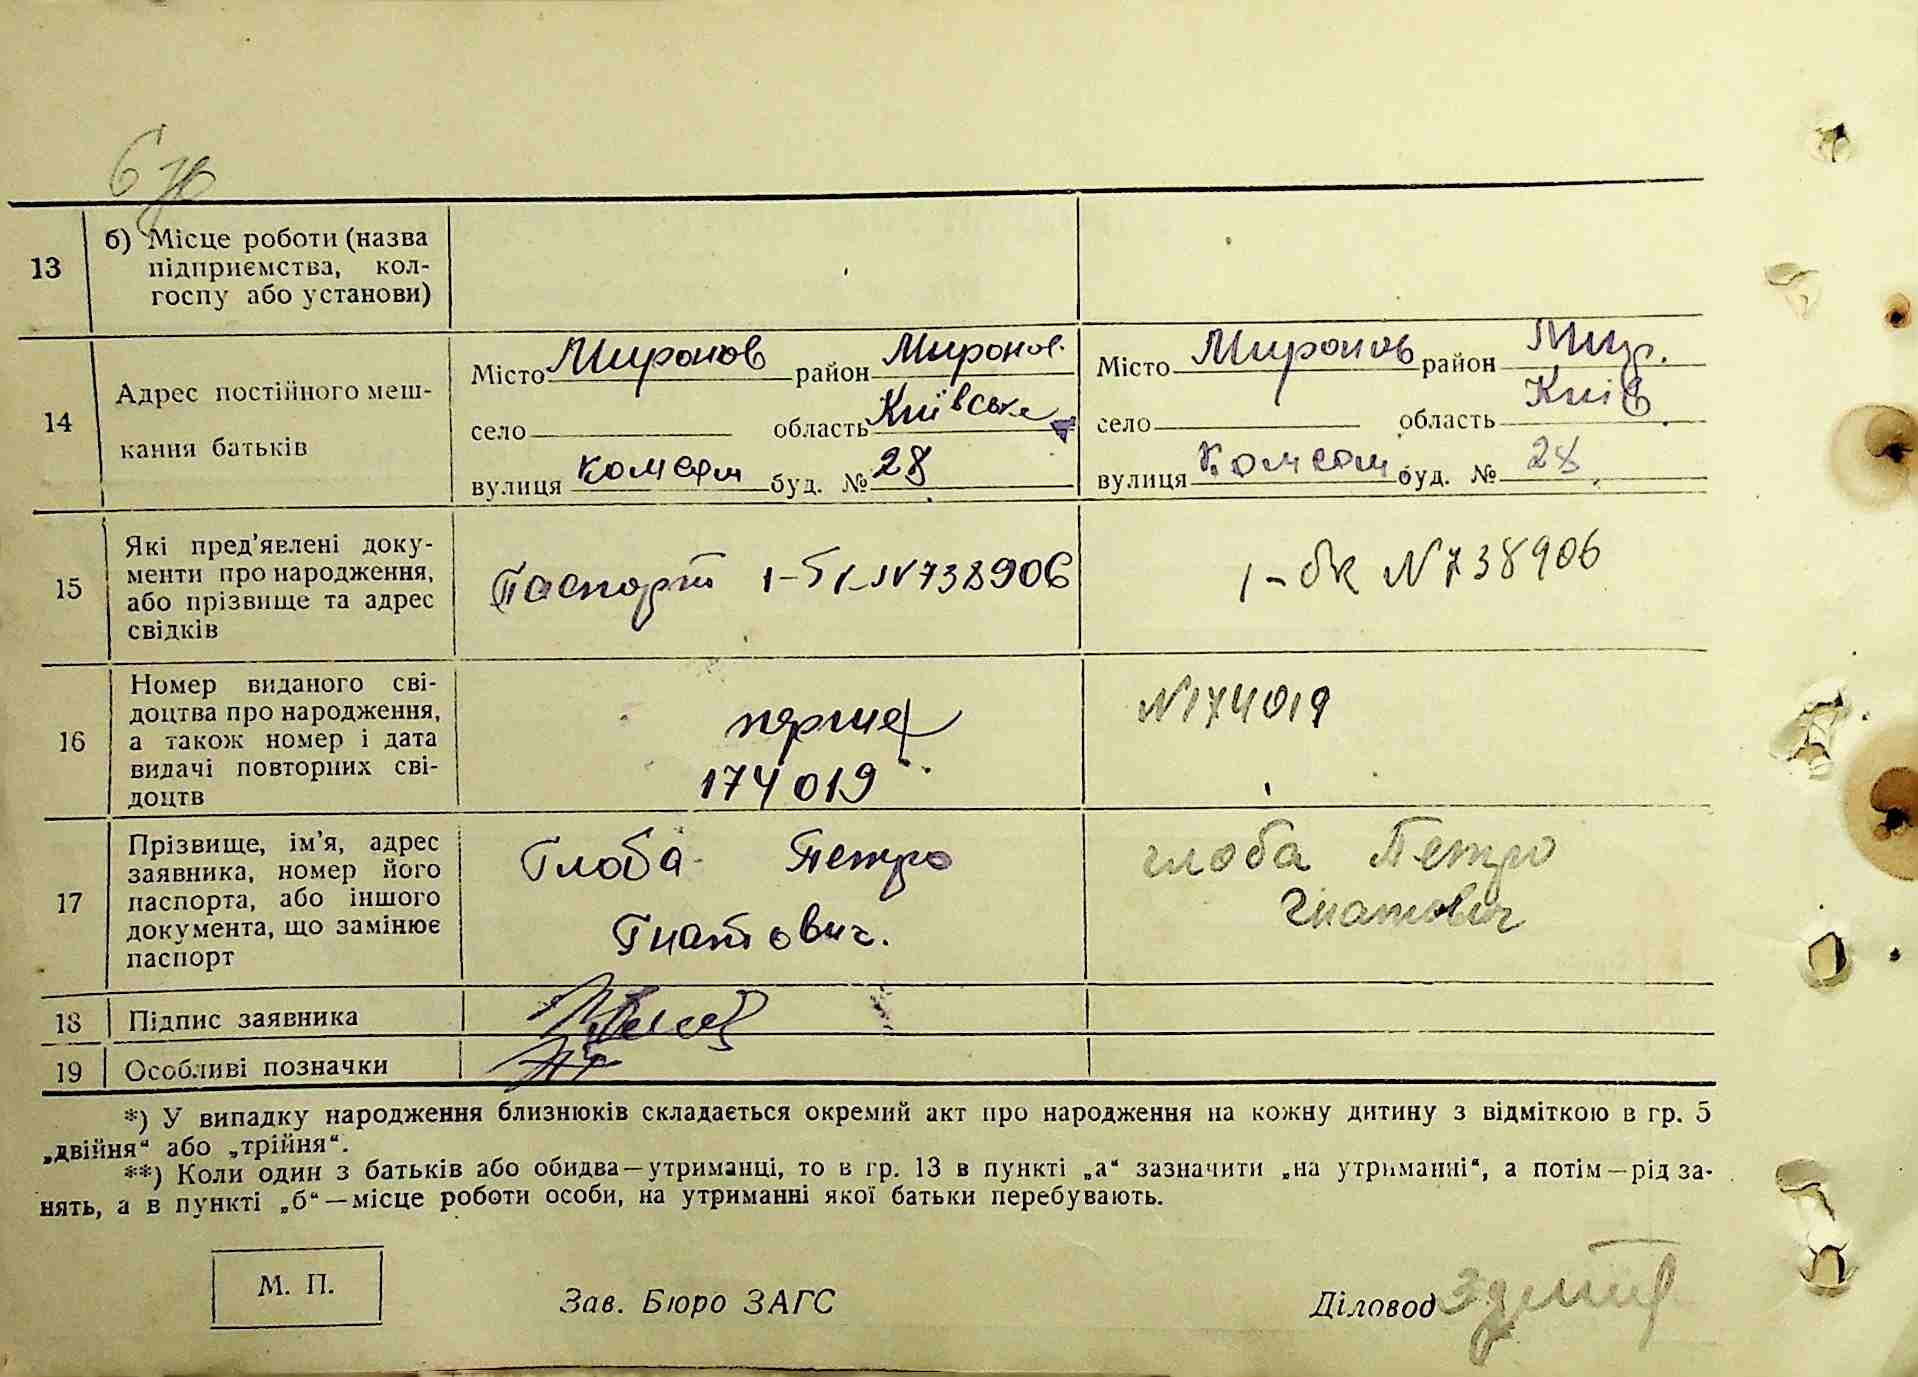 13 б) Місце роботи (назва
підприємства, кол-
госпу або установи)
14 Адрес постійного меш-
кання батьків
Місто Миронов район Миронов.
село область Київське
вулиця комсом буд. № 28
Місто Миронов район Мир.
село область Київ
вулиця Комсом буд. № 28
15 Які пред'явлені доку-
менти про народження,
або прізвище та адрес
свідків
Паспорт 1-бк N738906
1-бк N738906
16 Номер виданого сві-
доцтва про народження,
а також номер і дата
видачі повторних сві-
доцтв
174019
N174019
17 Прізвище, ім'я, адрес
заявника, номер його
паспорта, або іншого
документа, що замінює
паспорт
Глоба Петро
Гнатович.
Глоба Петро
Гнатович
18 Підпис заявника
19 Особливі позначки
*) У випадку народження близнюків складається окремий акт про народження на кожну дитину з відміткою в гр. 5
„двійня“ або „трійня“.
**) Коли один з батьків або обидва—утриманці, то в гр. 13 в пункті „а“ зазначити „на утриманні“, а потім—рід за-
нять, а в пункті „б“—місце роботи особи, на утриманні якої батьки перебувають.
М. П.
Зав. Бюро ЗАГС
Діловод